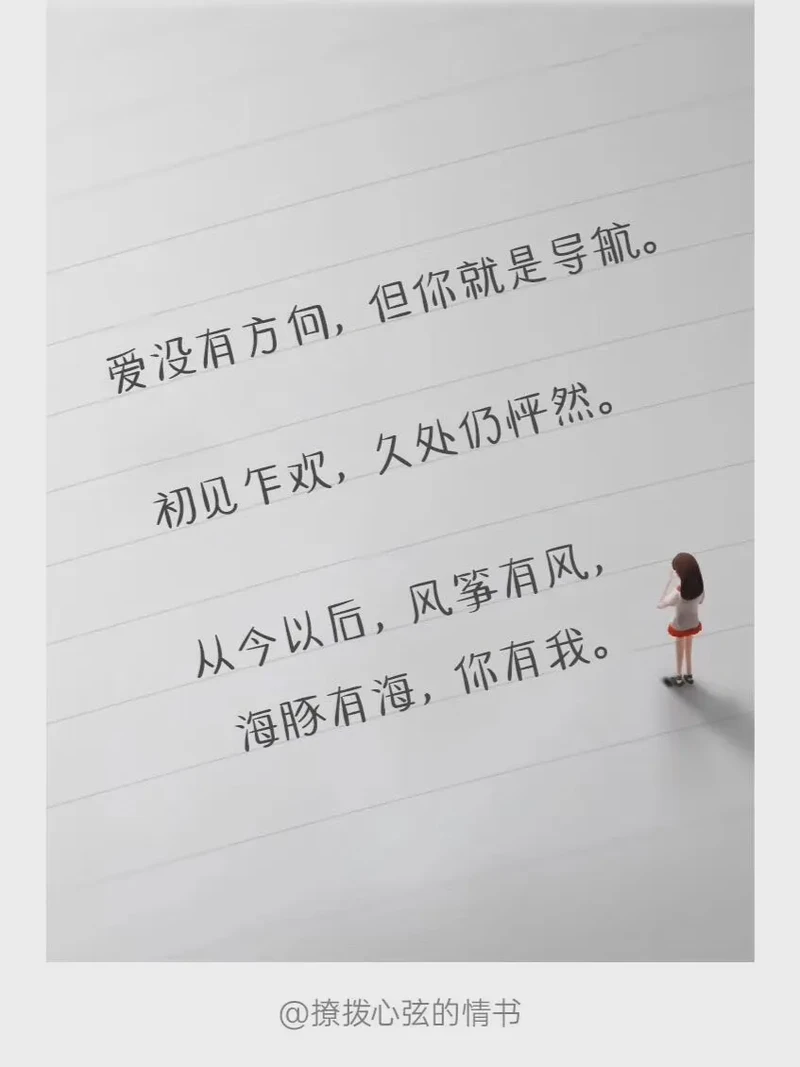 爱没有方向，但你就是导航。
初见乍欢，久处仍怦然。
从今以后，风筝有风，
海豚有海，你有我。
@撩拨心弦的情书